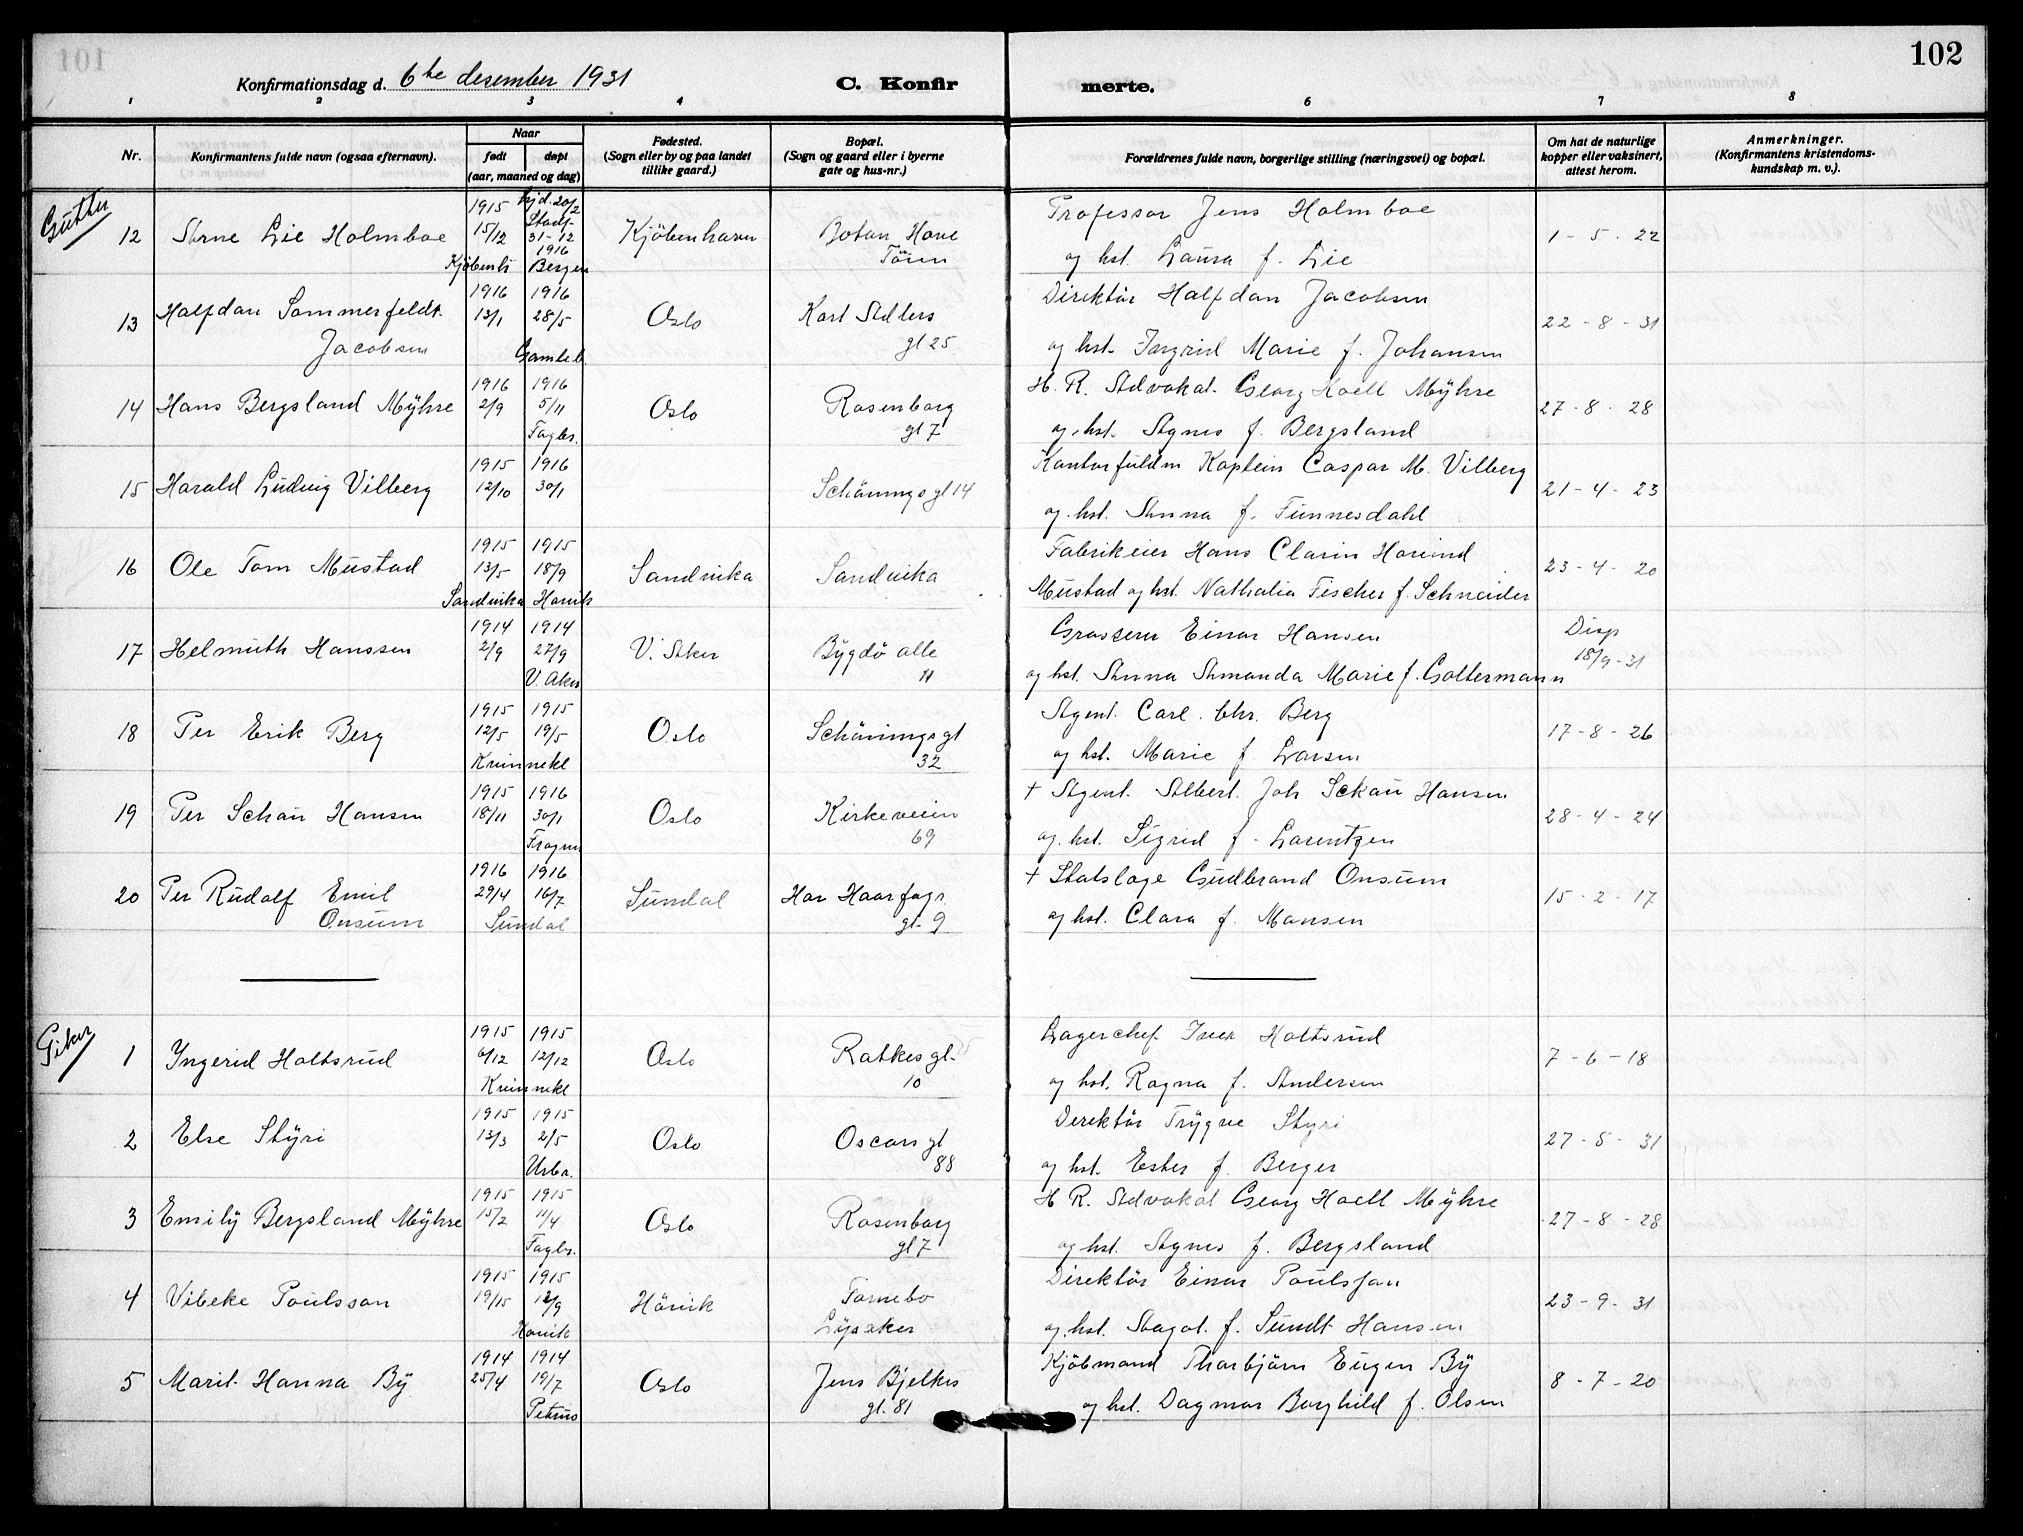 102
Konfirmationsdag d. 6te desember 1931 C. Konfir merte.
1 2 3 4 6 7 8
Nr.
Konfirmantens fulde navn (ogsaa efternavn).
Naar
født døpt
(aar, maaned og dag)
Fødested.
(Sogn eller by og paa landet
tillike gaard.)
Bopæl.
(Sogn og gaard eller i byerne
gate og hus-nr.)
Forældrenes fulde navn, borgerlige stilling (næringsvei) og bopæl.
Om hat de naturlige
kopper eller vaksinert,
attest herom.
Anmerkninger.
(Konfirmantens kristendoms-
kundskap m. v.).
Gutter
12 Arne Lie Holmboe 1915 15/12 hjd. 20/2 31-12 1916 Bergen Kjöbenhavn Botan Have Töien
Professor Jens Holmboe
og hst. Laura f. Lie
1-5-22
13 Halfdan Sommerfeldt
Jacobsen 1916 13/1 1916 28/5 Gamleb. Oslo Karl Adlers
gt 25
Direktör Halfdan Jacobsen
og hst. Ingrid Marie f. Johansen
22-8-31
14 Hans Bergsland Mÿhre 1916 2/9 1916 5/11 Fagbr. Oslo Rosenborg
gt 7
H. R. Advokat Georg Hoell Mÿhre
og hst. Agnes f. Bergsland
27-8-28
15 Harald Ludvig Vilberg 1915 12/10 1916 30/1 Schönings gt 14
Kontorfuldm Kaptein Caspar M. Vilberg
og hst. Anna f. Finnesdahl
21-4-23
16 Ole Tom Mustad 1915 13/5 Sandvika 1915 18/9 Hövik Sandvika Sandvika
Fabrikeier Hans Clarin Hovind
Mustad og hst. Nathalia Fischer f. Schneider
23-4-20
17 Helmuth Hanssen 1914 2/9 1914 27/9 V. Aker V. Aker Bÿgdö alle
11
Grosserer Einar Hansen
og hst. Anna Amanda Marie f. Goltermann
Disp
18/9-31
18 Per Erik Berg 1915 12/5 1915 19/5 Kvinnekl Oslo Schönings gt
32
Agent Carl Chr. Berg
og hst. Marie f. Larsen
17-8-26
19 Per Schau Hansen 1915 18/11 1916 30/1 Frogner Oslo Kirkeveien
69
+ Agent Albert Joh Schau Hansen
og hst. Sigrid f. Larentzen
28-4-24
20 Per Rudolf Emil
Onsum 1916 29/4 1916 16/7 Sundal Sundal Har Haarfagr.
gt. 9
+ Statslæge Gudbrand Onsum
og hst. Clara f. Mansen
15-2-17
Piker
1 Yngerid Holtsrud 1915 6/12 1915 12/12 Kvinnekl Oslo Ratkes gt.
10
Lagerchef Iver Holtsrud
og hst. Ragna f. Andersen
7-6-18
2 Else Stÿri 1915 13/3 1915 2/5 Urba. Oslo Oscars gt
88
Direktör Trÿgve Styri
og hst. Ester f. Berger
27-8-31
3 Emilÿ Bergsland Mÿhre 1915 15/2 1915 11/4 Fagbr. Oslo Rosenborg
gt 7
H R. Advokat Georg Hoell Mÿhre
og hst. Agnes f. Bergsland
27-8-28
4 Vibeke Poulsson 1915 1915 12/9 Hövik Hövik Fornebo
Lÿsaker
Direktör Einar Poulsson
og hst. Aagot f. Sundt Hansen
23-9-31
5 Marit Hanna Bÿ 1914 25/4 1914 19/7 Petrus Oslo Jens Bjelkes
gt. 81
Kjöbmand Thorbjörn Eugen Bÿ
og hst. Dagmar Borghild f. Olsen
8-7-20